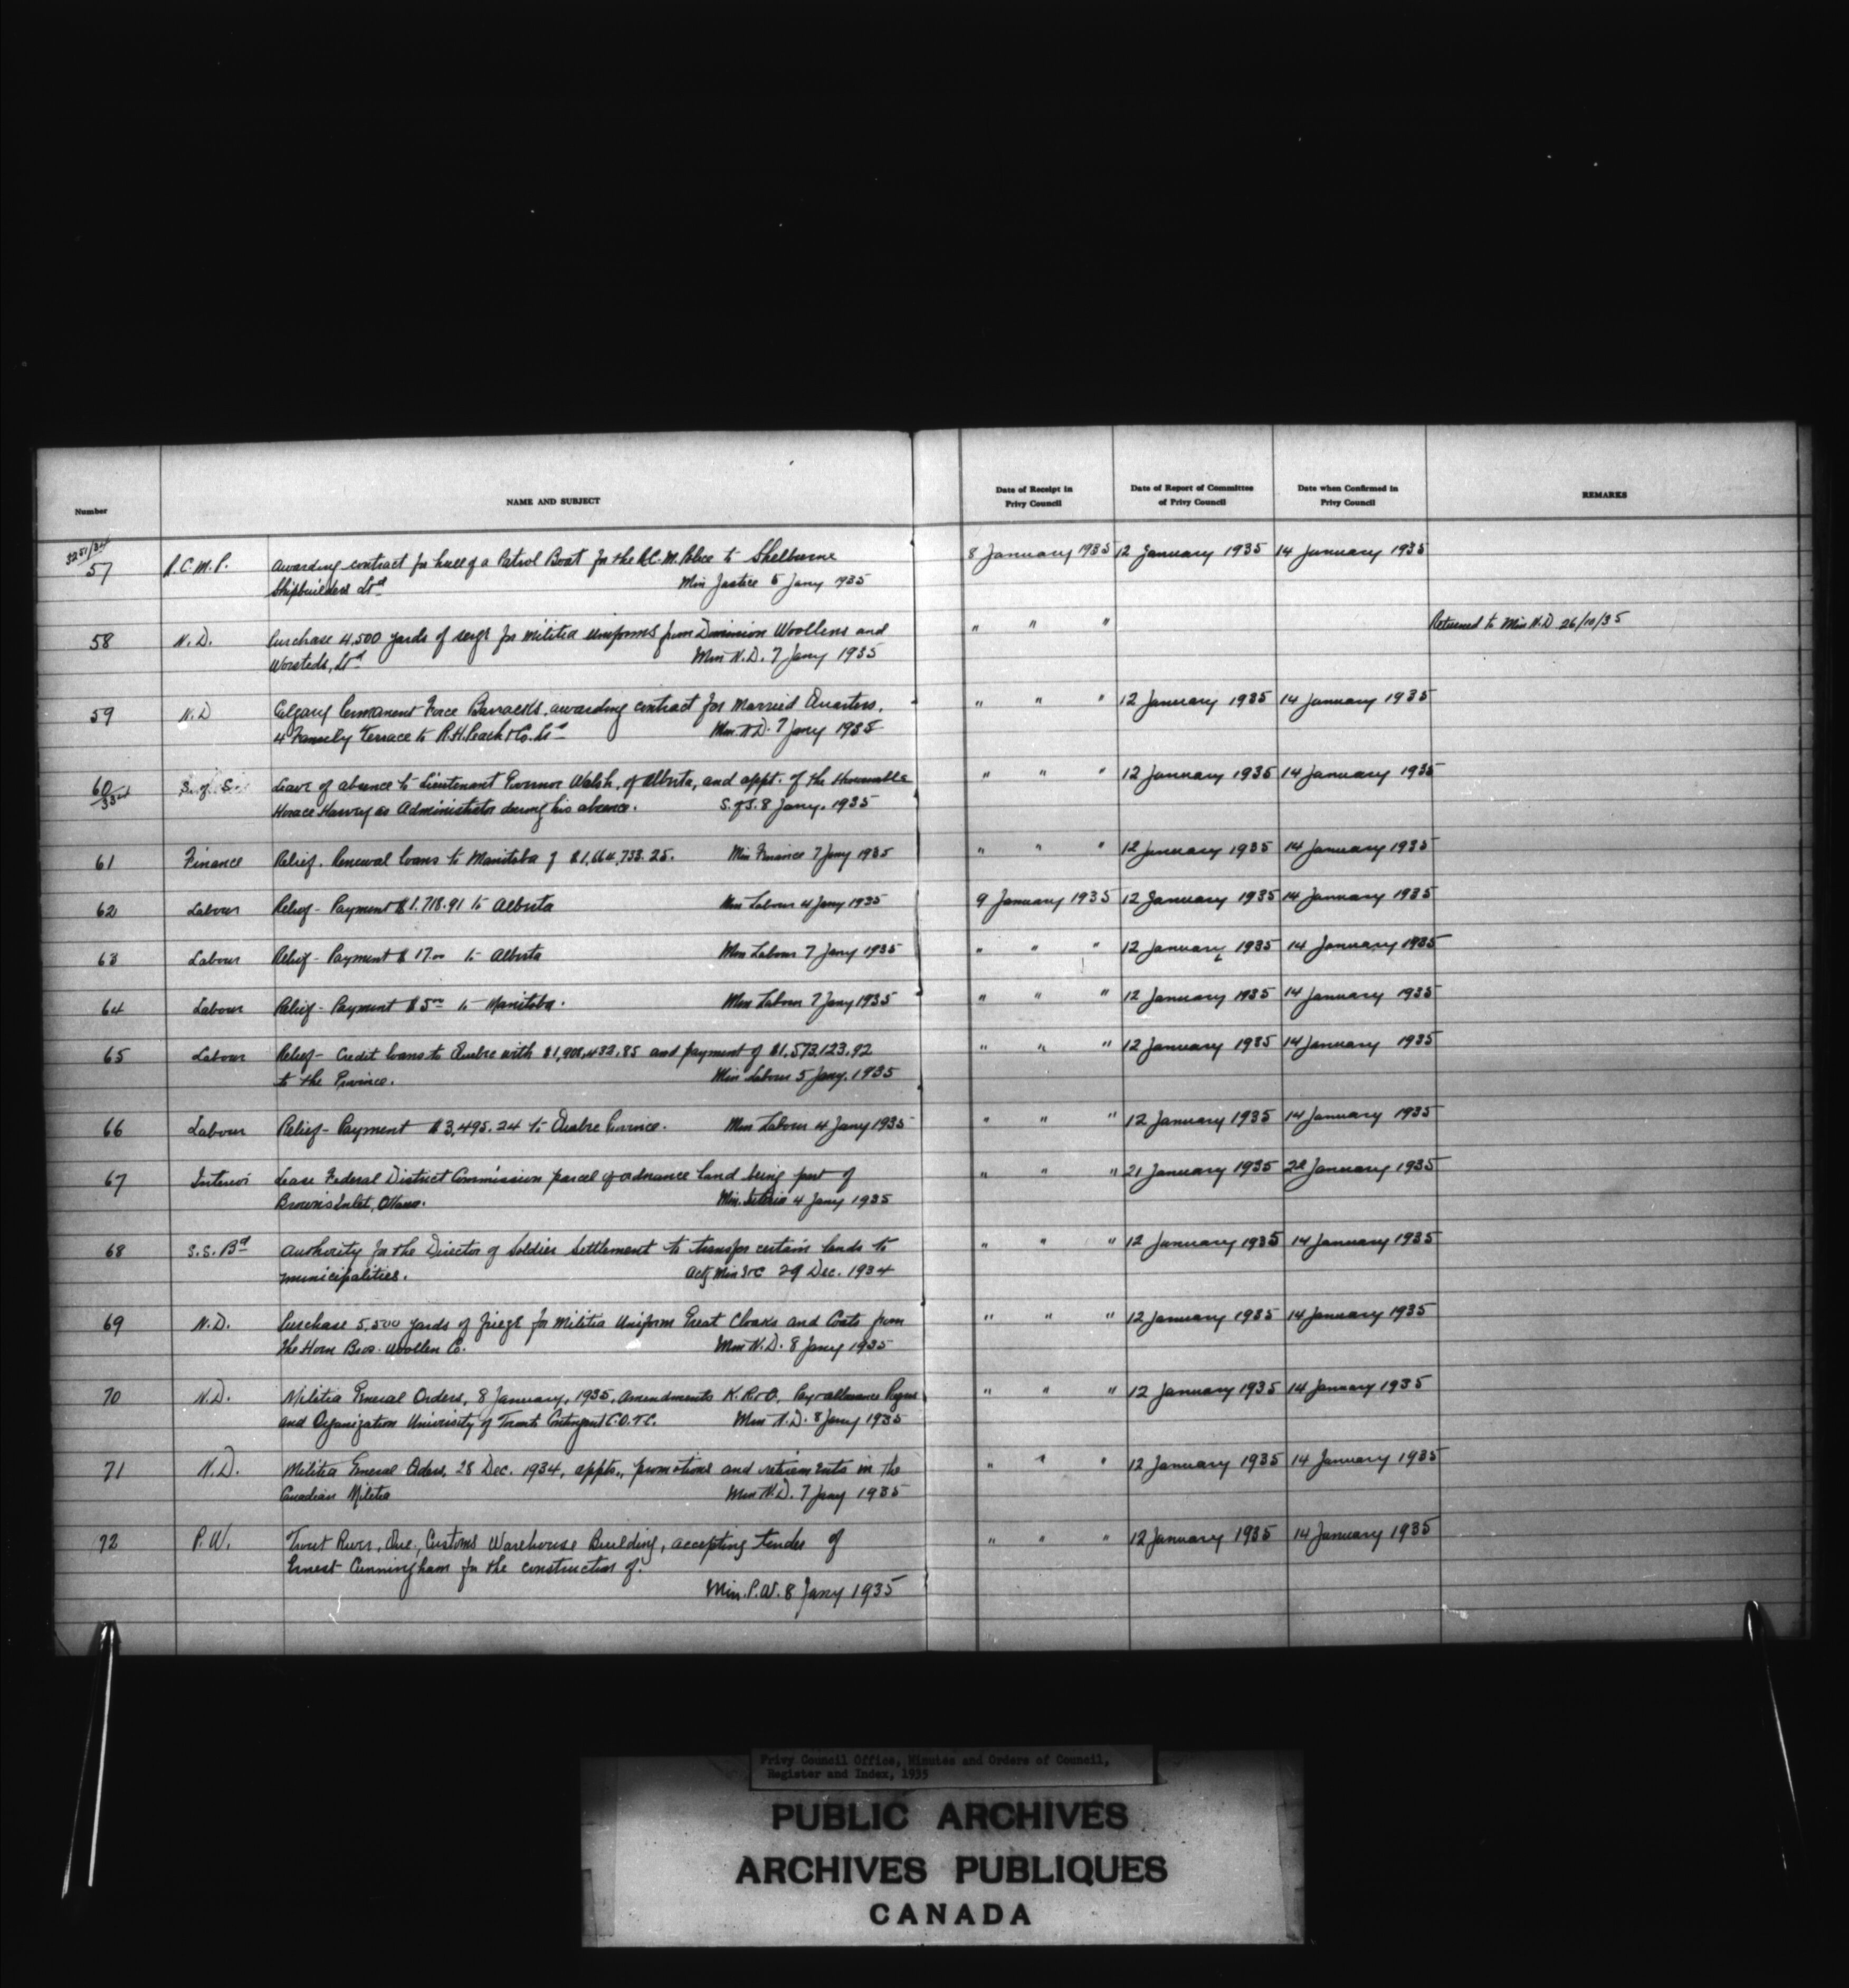 Number
NAME AND SUBJECT
Date of Receipt in
Privy Council
Date of Report of Committee
of Privy Council
Date when Confirmed in
Privy Council
REMARKS
57 R.C.M.P. Awarding contract for hull of a Patrol Boat for the R.C.M. Police to Shelburne 8 January 1935 12 January 1935 14 January 1935
Shipbuilders Ltd Min Justice 5 Jany 1935
58 N.D. Purchase 4,500 yards of serge for Militia Uniforms from Dominion Woollens and " " " Returned to Min N.D. 26/10/35
Worsteds, Ltd Min N.D. 7 Jany 1935
59 N.D Calgary Permanent Force Barracks, awarding contract for Married Quarters, " " " 12 January 1935 14 January 1935
4 Family Terrace to R.H. Peach & Co. Ltd Min. N.D. 7 Jany 1935
60 S. of S. Leave of absence to Lieutenant Governor Walsh, of Alberta, and appt. of the Honourable " " " 12 January 1935 14 January 1935
Horace Harvey as Administrator during his absence. S. of S. 8 Jany. 1935
61 Finance Relief. Renewal loans to Manitoba of $1,664,733.25. Min Finance 7 Jany 1935 " " 12 January 1935 14 January 1935
62 Labour Relief - Payment $1,718.91 to Alberta Min Labour 4 Jany 1935 9 January 1935 12 January 1935 14 January 1935
63 Labour Relief - Payment $17.00 to Alberta Min Labour 7 Jany 1935 " " " 12 January 1935 14 January 1935
64 Labour Relief - Payment $5.00 to Manitoba. Min Labour 7 Jany 1935 " " " 12 January 1935 14 January 1935
65 Labour Relief - Credit loans to Quebec with $1,908,432.85 and payment of $1,573,123.92 " " " 12 January 1935 14 January 1935
to the Province. Min Labour 5 Jany. 1935
66 Labour Relief - Payment $3,495.24 to Quebec Province. Min Labour 4 Jany 1935 " " " 12 January 1935 14 January 1935
67 Interior Lease Federal District Commission parcel of ordnance land being part of " " " 21 January 1935 22 January 1935
Brown's Inlet, Ottawa. Min. Interior 4 Jany 1935
68 S.S. Bd Authority for the Director of Soldier Settlement to transfer certain lands to " " " 12 January 1935 14 January 1935
municipalities. Actg Min 29 Dec. 1934
69 N.D. Purchase 5,500 yards of frieze for Militia Uniform Great Cloaks and Coats from " " " 12 January 1935 14 January 1935
the Horn Bros. Woollen Co. Min N.D. 8 Jany 1935
70 N.D. Militia General Orders, 8 January, 1935, Amendments K.R. & O., Pay & allowance Regns " " " 12 January 1935 14 January 1935
and Organization University of Toronto Contingent C.O.T.C. Min N.D. 8 Jany 1935
71 N.D. Militia General Orders, 28 Dec. 1934, appts., promotions and retirements in the " " " 12 January 1935 14 January 1935
Canadian Militia Min N.D. 7 Jany 1935
72 P.W. Trout River, Que., Customs Warehouse Building, accepting tender of " " " 12 January 1935 14 January 1935
Ernest Cunningham for the construction of.
Min. P.W. 8 Jany 1935
Privy Council Office, Minutes and Orders of Council,
Register and Index, 1935
PUBLIC ARCHIVES
ARCHIVES PUBLIQUES
CANADA